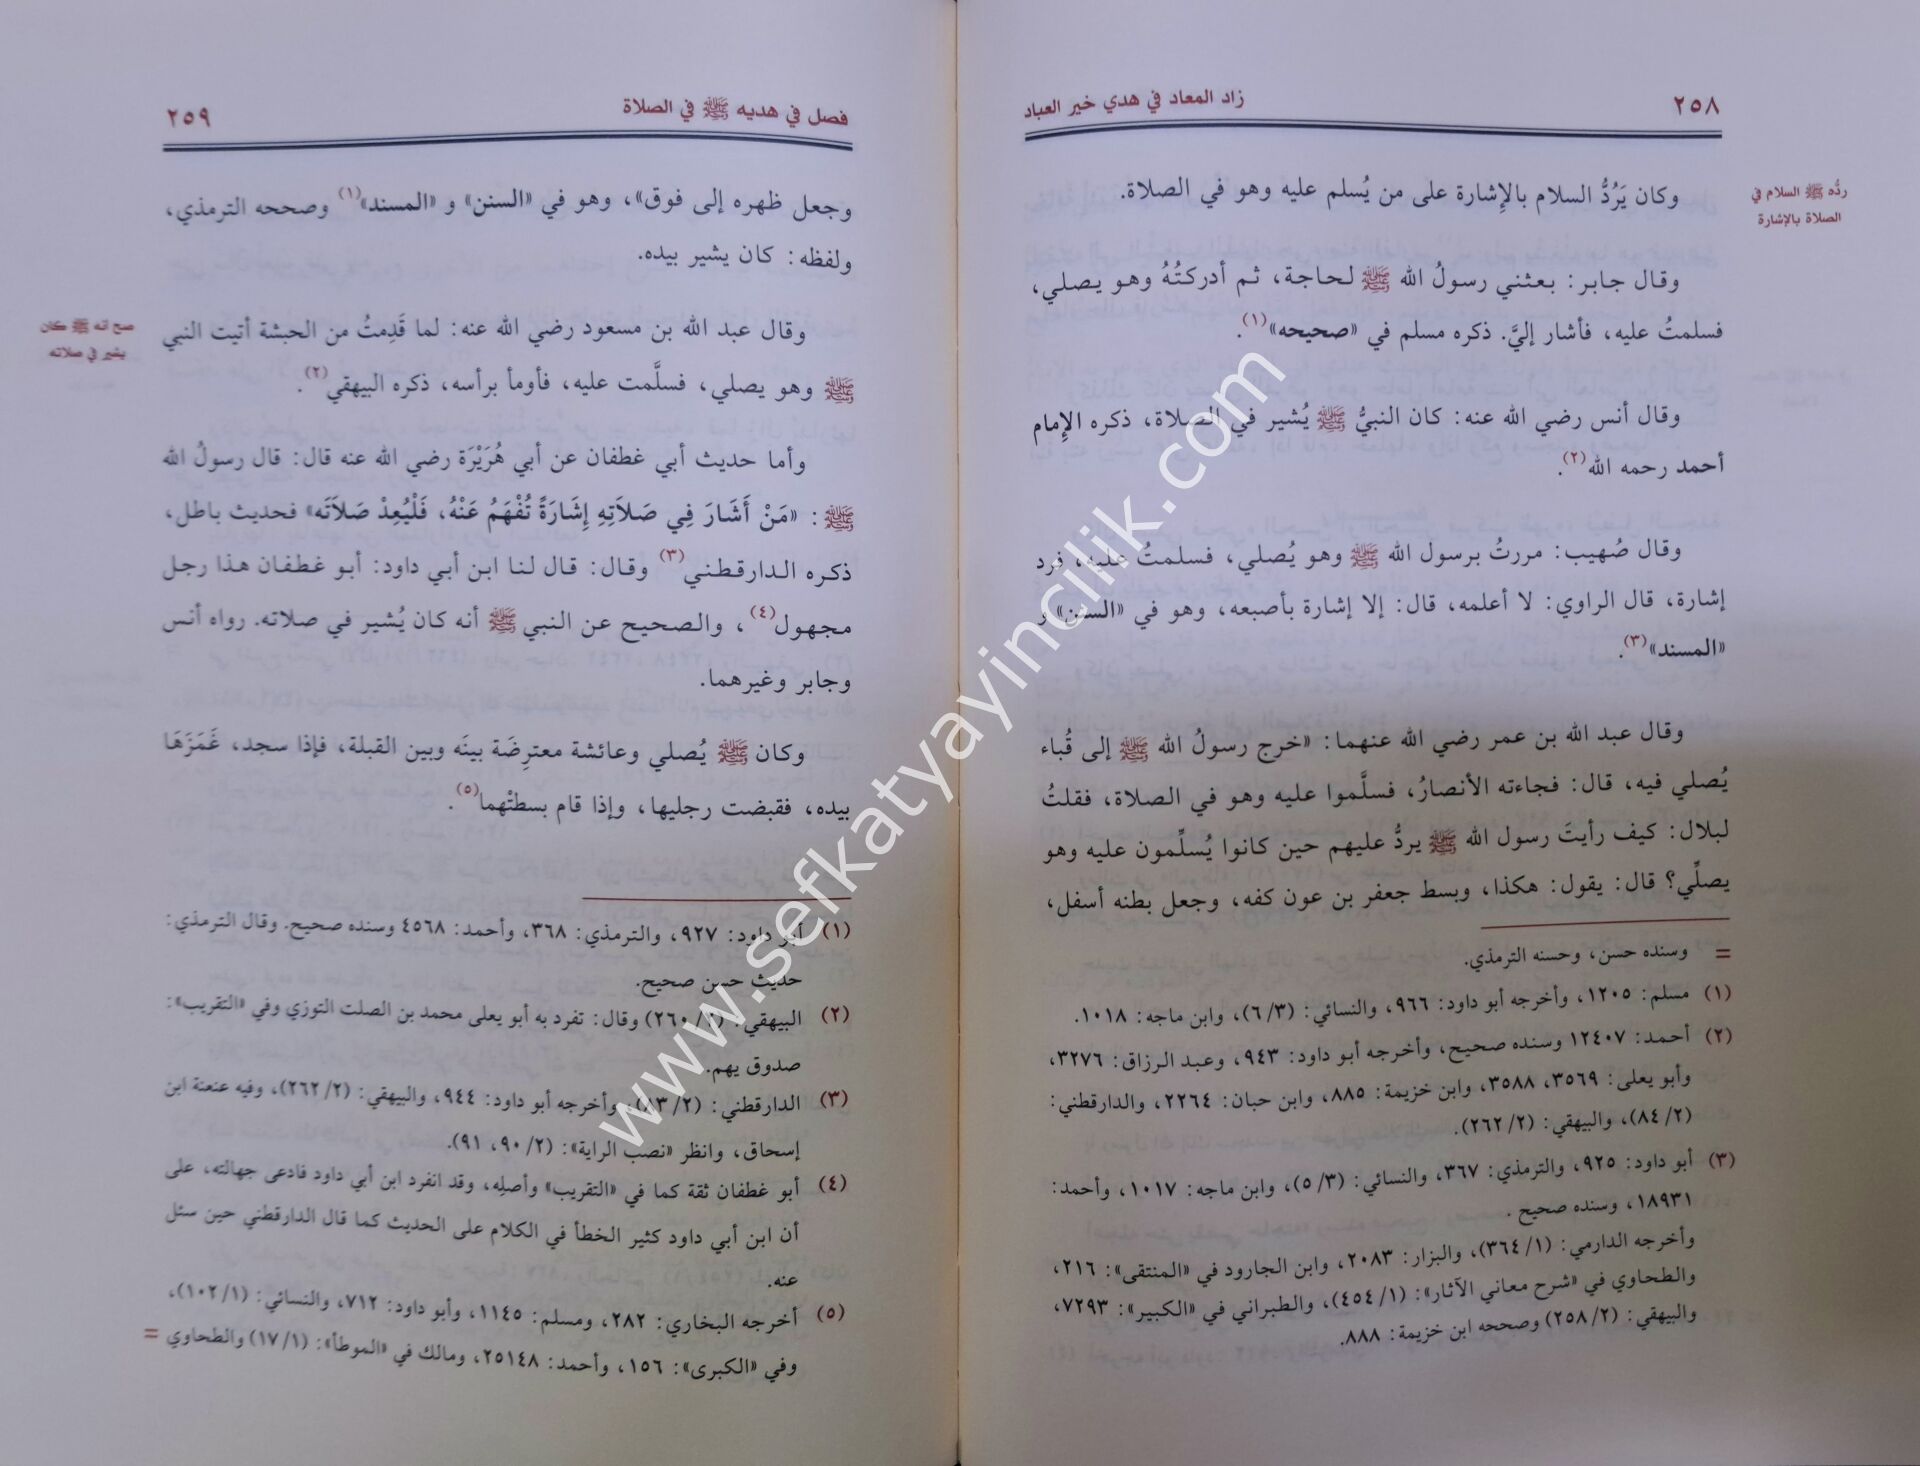 ٢٥٨
زاد المعاد في هدي خير العباد
ردُّه ﷺ السلام في
الصلاة بالإشارة
وكان يَرُدُّ السلام بالإشارة على من يُسلم عليه وهو في الصلاة.
وقال جابر: بعثني رسولُ الله ﷺ لحاجة، ثم أدركتُهُ وهو يصلي،
فسلمتُ عليه، فأشار إليَّ. ذكره مسلم في «صحيحه»(١).
وقال أنس رضي الله عنه: كان النبيُّ ﷺ يُشير في الصلاة، ذكره الإمام
أحمد رحمه الله(٢).
وقال صُهيب: مررتُ برسول الله ﷺ وهو يُصلي، فسلمتُ عليه، فرد
إشارة، قال الراوي: لا أعلمه، قال: إلا إشارة بأصبعه، وهو في «السنن» و
«المسند»(٣).
وقال عبد الله بن عمر رضي الله عنهما: «خرج رسولُ الله ﷺ إلى قُباء
يُصلي فيه، قال: فجاءته الأنصارُ، فسلَّموا عليه وهو في الصلاة، فقلتُ
لبلال: كيف رأيتَ رسول الله ﷺ يردُّ عليهم حين كانوا يُسلِّمون عليه وهو
يصلِّي؟ قال: يقول: هكذا، وبسط جعفر بن عون كفه، وجعل بطنه أسفل،
= وسنده حسن، وحسنه الترمذي.
(١) مسلم: ١٢٠٥، وأخرجه أبو داود: ٩٦٦، والنسائي: (٦/٣)، وابن ماجه: ١٠١٨.
(٢) أحمد: ١٢٤٠٧ وسنده صحيح، وأخرجه أبو داود: ٩٤٣، وعبد الرزاق: ٣٢٧٦،
وأبو يعلى: ٣٥٦٩، ٣٥٨٨، وابن خزيمة: ٨٨٥، وابن حبان: ٢٢٦٤، والدارقطني:
(٨٤/٢)، والبيهقي: (٢٦٢/٢).
(٣) أبو داود: ٩٢٥، والترمذي: ٣٦٧، والنسائي: (٥/٣)، وابن ماجه: ١٠١٧، وأحمد:
١٨٩٣١، وسنده صحيح.
وأخرجه الدارمي: (٣٦٤/١)، والبزار: ٢٠٨٣، وابن الجارود في «المنتقى»: ٢١٦،
والطحاوي في «شرح معاني الآثار»: (٤٥٤/١)، والطبراني في «الكبير»: ٧٢٩٣،
والبيهقي: (٢٥٨/٢) وصححه ابن خزيمة: ٨٨٨.
فصل في هديه ﷺ في الصلاة
٢٥٩
وجعل ظهره إلى فوق»، وهو في «السنن» و «المسند»(١) وصححه الترمذي،
ولفظه: كان يشير بيده.
صح انه ﷺ كان
يشير في صلاته
وقال عبد الله بن مسعود رضي الله عنه: لما قَدِمتُ من الحبشة أتيت النبي
ﷺ وهو يصلي، فسلَّمت عليه، فأومأ برأسه، ذكره البيهقي(٢).
وأما حديث أبي غطفان عن أبي هُرَيْرَة رضي الله عنه قال: قال رسولُ الله
ﷺ: «مَنْ أَشَارَ فِي صَلاَتِهِ إِشَارَةً تُفْهَمُ عَنْهُ، فَلْيُعِدْ صَلاَتَه» فحديث باطل،
ذكره الدارقطني(٣) وقال: قال لنا ابن أبي داود: أبو غطفان هذا رجل
مجهول(٤)، والصحيح عن النبي ﷺ أنه كان يُشير في صلاته. رواه أنس
وجابر وغيرهما.
وكان ﷺ يُصلي وعائشة معترِضَة بينَه وبين القبلة، فإذا سجد، غَمَزَهَا
بيده، فقبضت رجليها، وإذا قام بسطتْهما(٥).
(١) أبو داود: ٩٢٧، والترمذي: ٣٦٨، وأحمد: ٤٥٦٨ وسنده صحيح. وقال الترمذي:
حديث حسن صحيح.
(٢) البيهقي: (٢٦٠/٢) وقال: تفرد به أبو يعلى محمد بن الصلت التوزي وفي «التقريب»:
صدوق يهم.
(٣) الدارقطني: (٨٣/٢)، وأخرجه أبو داود: ٩٤٤، والبيهقي: (٢٦٢/٢)، وفيه عنعنة ابن
إسحاق، وانظر «نصب الراية»: (٩٠/٢، ٩١).
(٤) أبو غطفان ثقة كما في «التقريب» وأصلِه، وقد انفرد ابن أبي داود فادعى جهالته، على
أن ابن أبي داود كثير الخطأ في الكلام على الحديث كما قال الدارقطني حين سئل
عنه.
(٥) أخرجه البخاري: ٢٨٢، ومسلم: ١١٤٥، وأبو داود: ٧١٢، والنسائي: (١٠٢/١)،
وفي «الكبرى»: ١٥٦، وأحمد: ٢٥١٤٨، ومالك في «الموطأ»: (١١٧/١) والطحاوي =
www.sefkatyayincilik.com